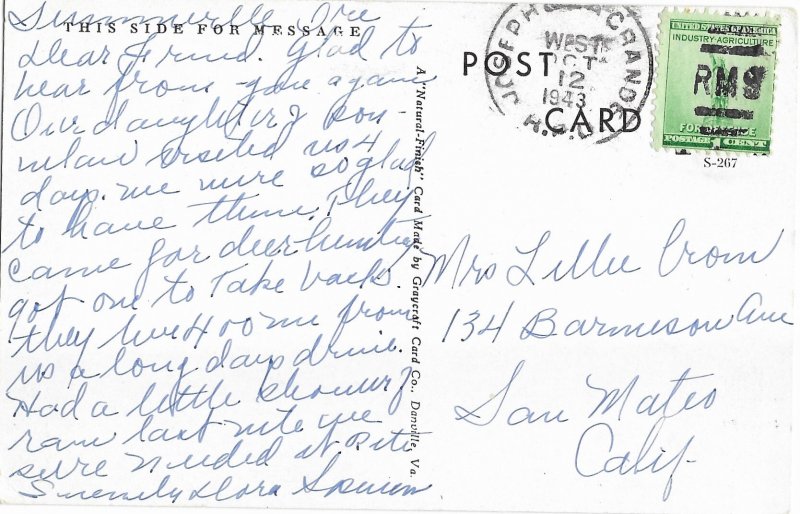 Summerville Ore
THIS SIDE FOR MESSAGE
Dear Friend. Glad to
hear from you again
Our daughter & son-
inlaw visited us 4
days. we were so glad
to have them. They
came for deer hunting
got one to Take back.
they live 400 mi from
us a long days drive.
Had a little shower of
rain last nite we
sure needed it
Sincerely Dora
A "Natural-Finish" Card Made by Graycraft Card Co., Danville, Va.
POST
CARD
JOSEPH & LA GRANDE
WEST
OCT
12
1943
R.P.O.
UNITED STATES OF AMERICA
INDUSTRY-AGRICULTURE
RMS
FOR DEFENSE
POSTAGE 1 CENT
S-267
Mrs Lillie Crom
134 Barneson Ave
San Mateo
Calif